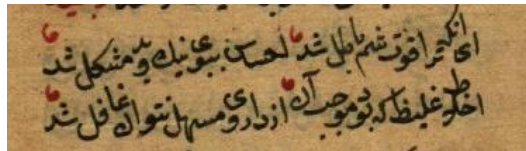 ای آنکه ترا قوت شم باطل شد احساس ببوی نیک و بد مشکل شد
اخلاط غلیظ که بود موجب آن از داروی مسهل نتوان غافل شد